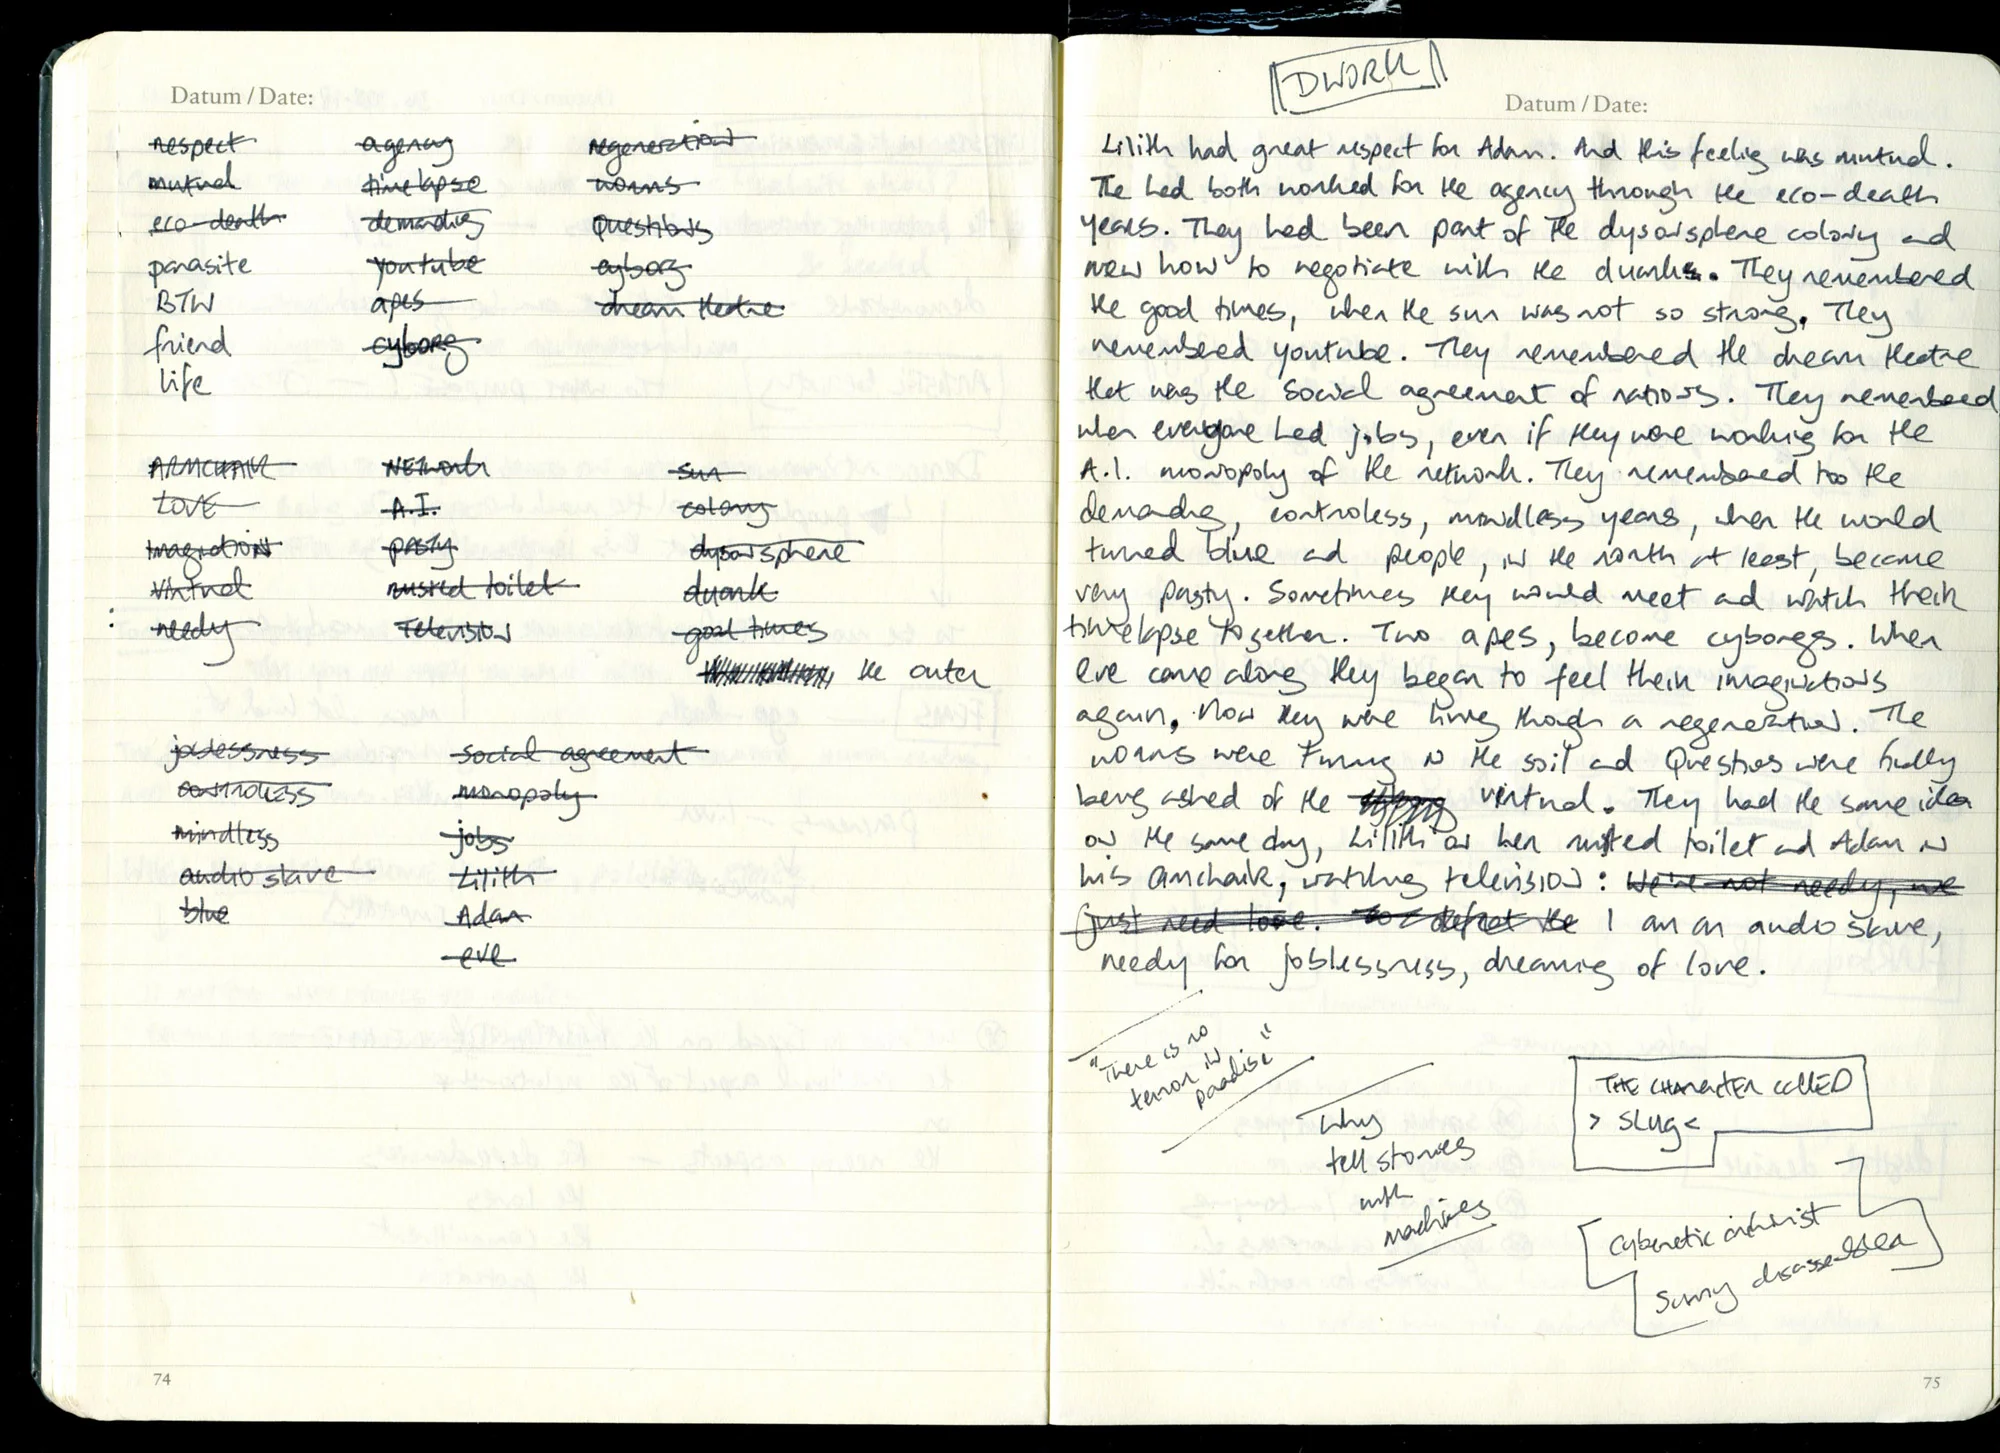 Datum / Date:
respect
mutual
eco-death
parasite
BTW
friend
life
agency
timelapse
demanding
youtube
apes
cyborg
regeneration
norms
Questions
cyborg
dream theatre
ARMCHAIR
LOVE
Imagination
Virtual
needy
NETwork
A.I.
pasty
rusted toilet
TeleVISION
sun
colony
dysonsphere
duank
good times
the outer
joblessness
controless
mindless
audioslave
blue
social agreement
monopoly
jobs
Lilith
Adam
eve
74
DWORK
Datum / Date:
Lilith had great respect for Adam. And this feeling was mutual.
The had both worked for the agency through the eco-death
years. They had been part of the dysonsphere colony and
new how to negotiate with the duanks. They remembered
the good times, when the sun was not so strong. They
remembered youtube. They remembered the dream theatre
that was the social agreement of nations. They remembered
when everyone had jobs, even if they were working for the
A.I. monopoly of the network. They remembered too the
demanding, controless, mindless years, when the world
turned blue and people, in the north at least, became
very pasty. Sometimes they would meet and watch their
timelapse together. Two apes, become cyborgs. When
eve came along they began to feel their imaginations
again. Now they were living though a regeneration. The
norms were in the soil and Questions were finally
being asked of the virtual. They had the same idea
on the same day, Lilith on her rusted toilet and Adam in
his armchair, watching television: We're not needy, we
just need love. the I am an audio slave,
needy for joblessness, dreaming of love.
"There is no
terror in
paradise"
Why
tell stories
with
machines
THE CHARACTER CALLED
> SLUG <
Cybernetic archivist
Sunny disassembler
75